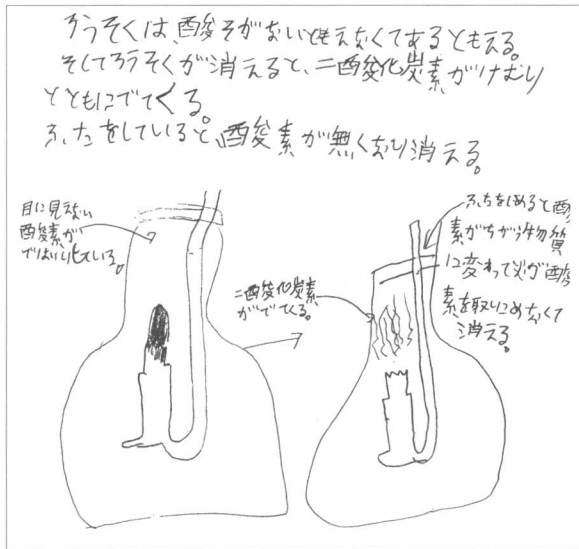 ろうそくは、酸そがないともえなくてあるともえる。
そしてろうそくが消えると、二酸化炭素がけむり
とともにでてくる。
ふたをしていると、酸素が無くなり消える。
目に見えない
酸素が
ではいりしている。
二酸化炭素
がでてくる。
ふたをしめると酸
素がちがう物質
に変わって火が酸
素を取りこめなくて
消える。